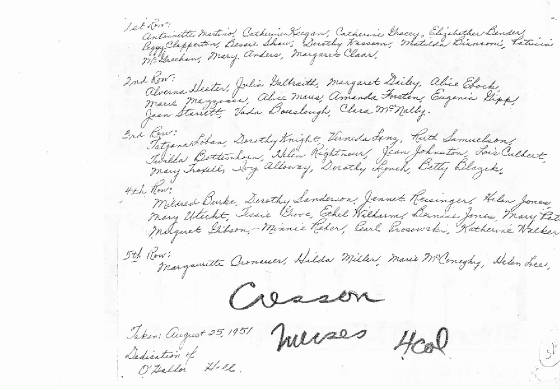 1st Row:
Antoinette Martino, Catherine Keegan, Catherine Gracey, Elizabether Bender,
Peggy Clapperton, Bessie Shaw, Dorothy Wassern, Matilda Patricia
McGeehan, Mary Anders, Margaret Claar.
2nd Row:
Alverna Hester, Julia Galbraith, Margaret Dailey, Alice Ebock,
Marie Alice Maus, Amanda Hipp,
Jean Starrett, Vada Bouslough, Clara McNally.
3rd Row:
Tatjana Dorothy Knight, Verneda Long, Ruth Samuelson,
Twilla Bottenhorn, Helen Rightnour, Jean Johnston, Lois Culbert,
Mary Troxell, Ivy Alloway, Dorothy Lynch, Betty Blazek.
4th Row:
Mildred Burke, Dorothy Sanderson, Jennet Reininger, Helen Jones,
Mary Utecht, Tessie Ethel Williams, Bernice Jones, Mary
Margaret Gibson, Minnie Reher, Pearl Brosowske, Katherine Walker
5th Row:
Margaurette Hilda Miller, Marie McConeghy, Helen Lees.
Cresson
Nurses 4 col
Taken: August 25, 1951
Dedication of
O'Hallor Hall.